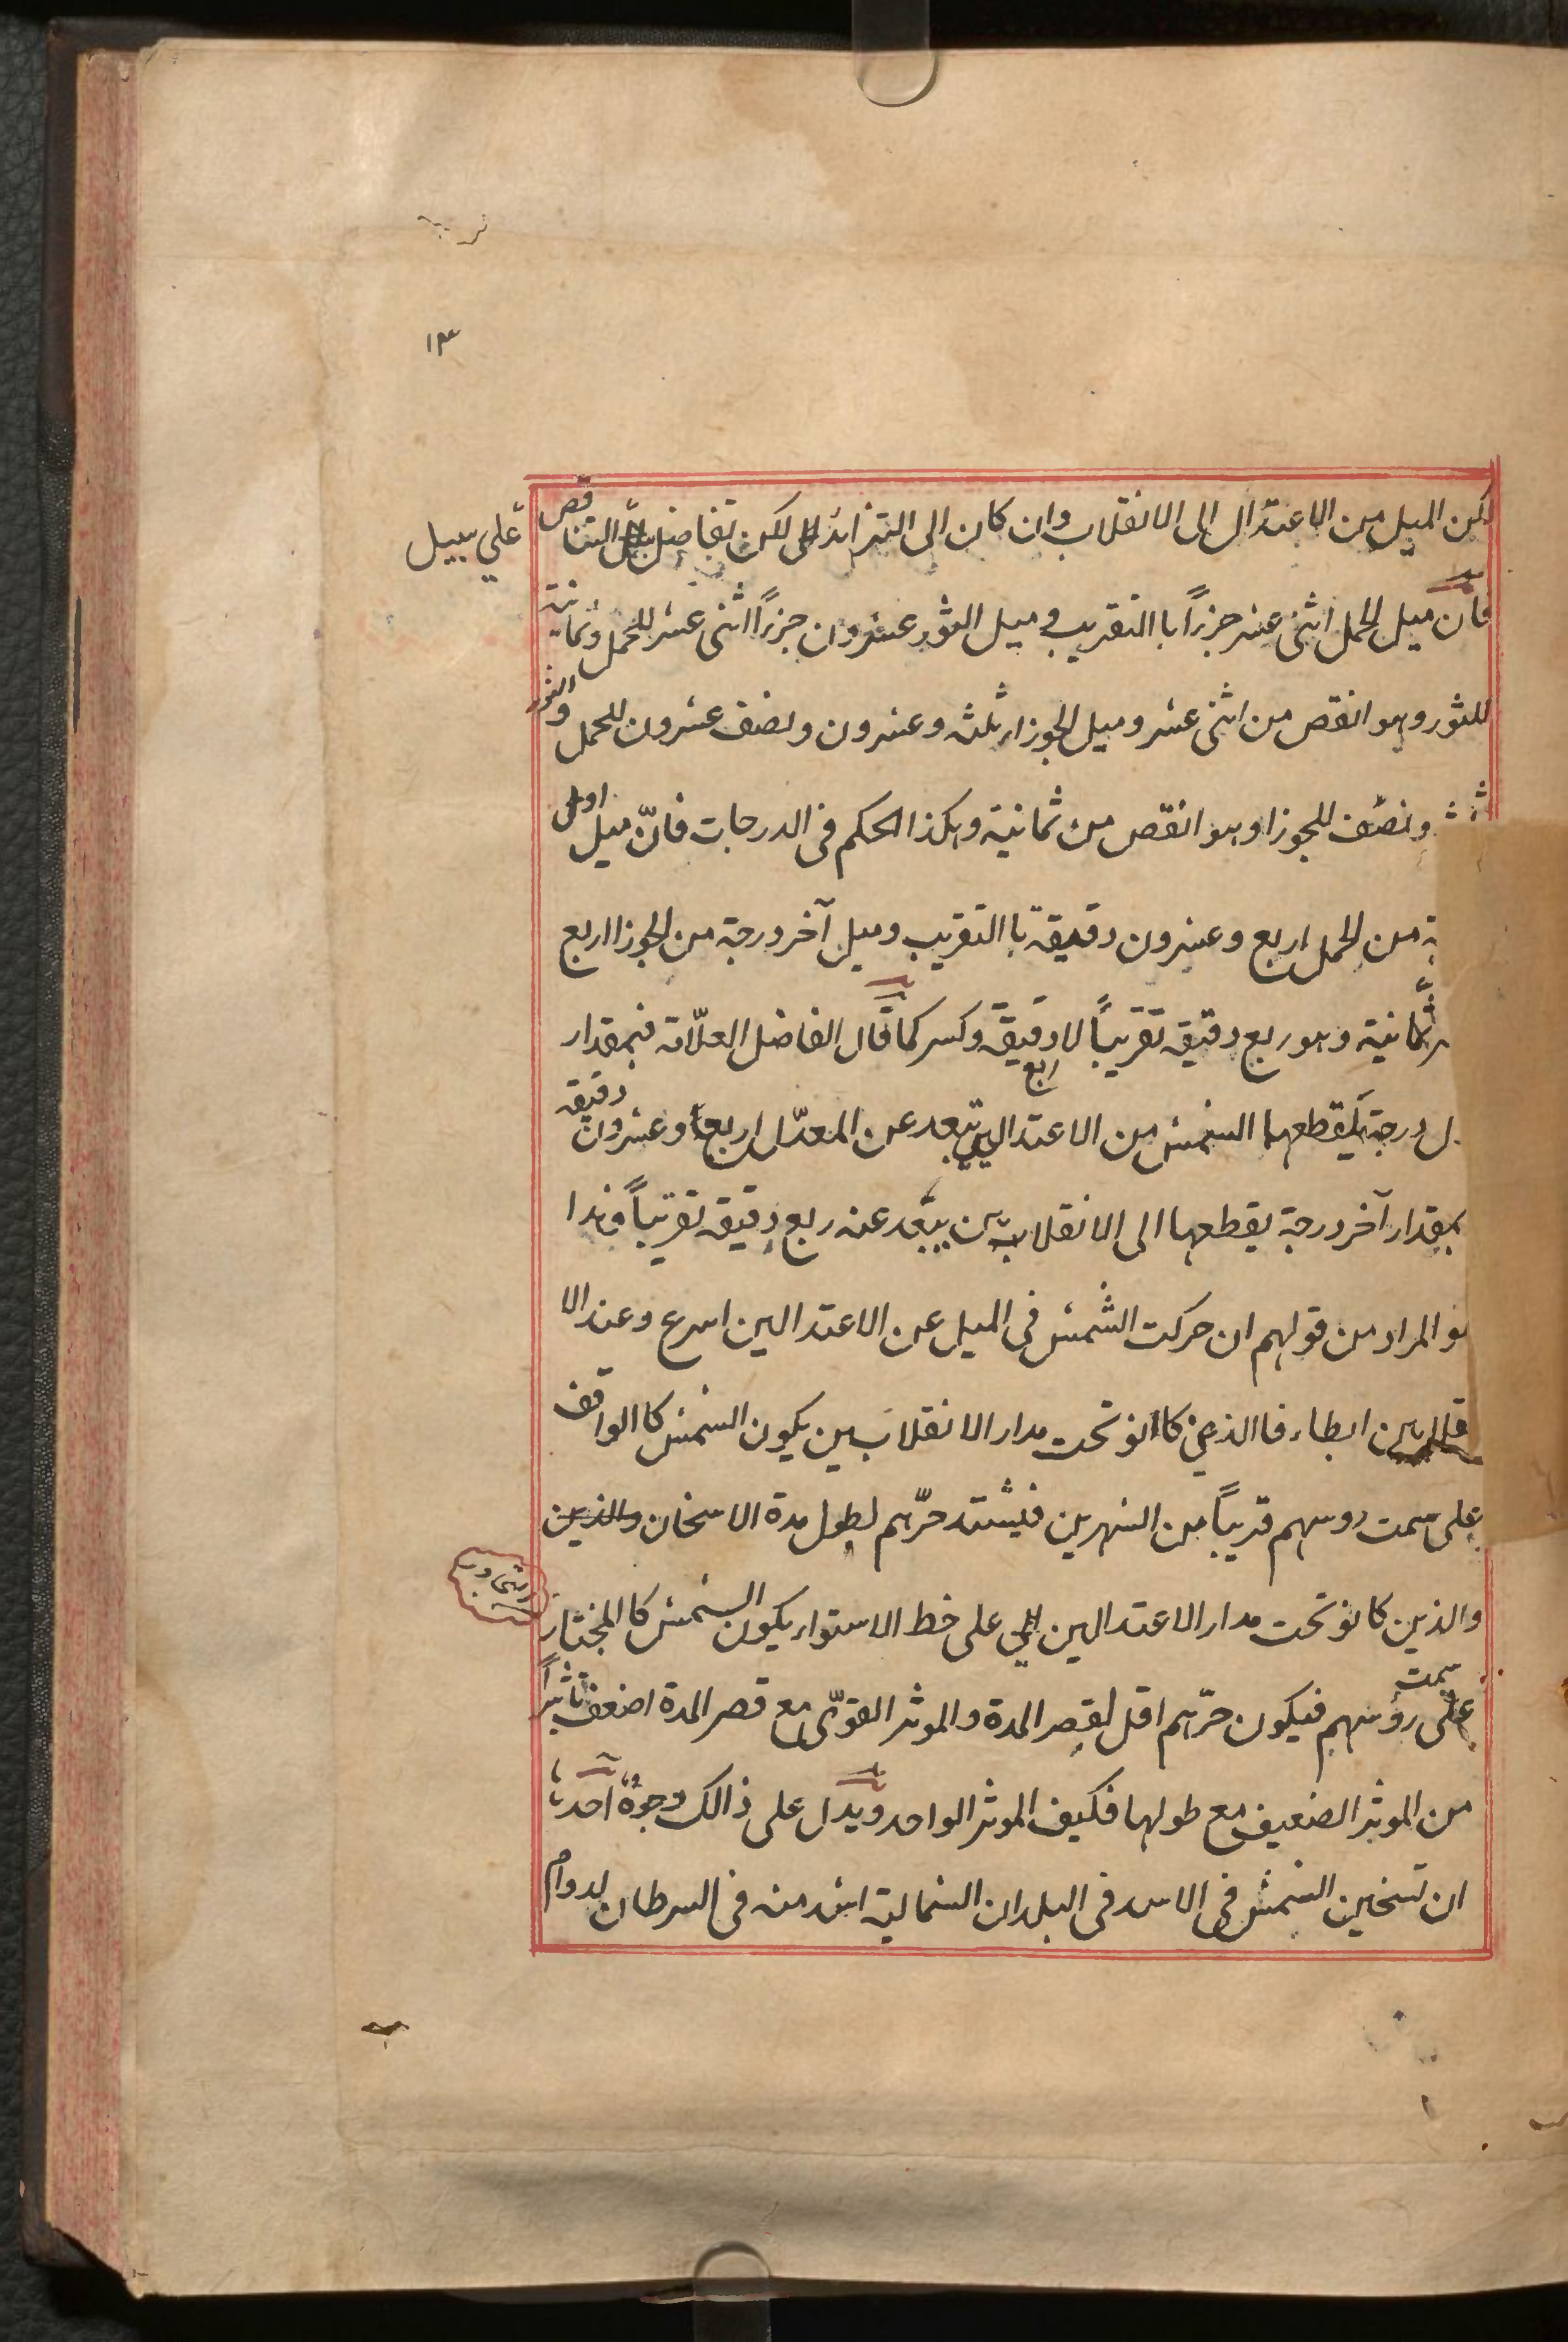 ١٣
لكن الميل من الاعتدال الى الانقلاب وان كان الى التزائد لكن تفاضل التناقص
على سبيل
فان ميل الحمل اثنى عشر جزءًا باالتقريب و ميل الثور عشرون جزءًا اثنى عشر للحمل وثمانية
للثور وهو انقص من اثنى عشر وميل الجوزاء ثلثه وعشرون ونصف عشرون للحمل والثور
ونصف للجوزا وهو انقص من ثمانية وهكذا الحكم فى الدرجات فانّ ميل اول
من الحمل اربع وعشرون دقيقة باالتقريب وميل آخر درجة من الجوزا اربع
ثمانية وهو ربع دقيقه تقريباً لا دقيقة وكسر كما قال الفاضل العلّامة فبمقدار
درجة يقطعها الشمس من الاعتدالين تبعد عن المعدّل اربع وعشرون دقيقه
بمقدار آخر درجة يقطعها الى الانقلابين يبعد عنه ربع دقيقه تقريباً وهذا
هو المراد من قولهم ان حركت الشمس فى الميل عن الاعتدالين اسرع وعند الا
ابطاء فاالذين كاانو تحت مدار الانقلابين يكون الشمس كاالواقف
على سمت روسهم قريباً من الشهرين فيشتد حرّهم لطول مدة الاسخان والذين
والذين كانو تحت مدار الاعتدالين على خط الاستواء يكون الشمس كاالمجتاز
على سمت رؤسهم فيكون حرّهم اقل لقصر المدة والموثر القوّى مع قصر المدة اضعف تاثيراً
من الموثر الضعيف مع طولها فكيف الموثر الواحد ويدل على ذالك وجوهٌ احدها
ان تسخين الشمس فى الاسد فى البلدان الشمالية اشد منه فى السرطان لدوام